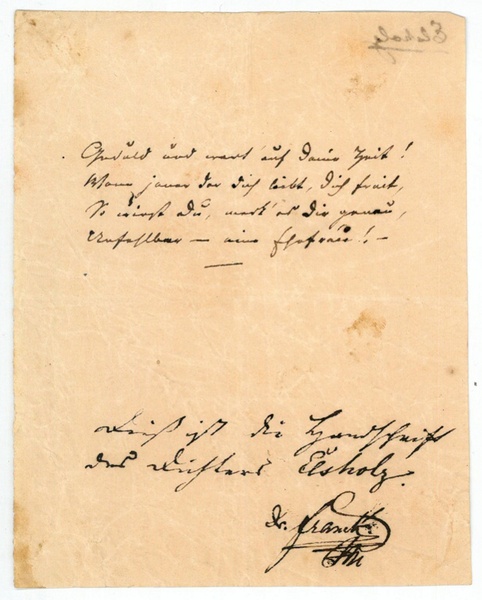 Elsholz
Geduld und wart' auf deine Zeit!
Wenn jener der dich liebt, dich freit,
So wirst du, merk' es dir genau,
Unfehlbar – eine Ehefrau! –
Dieß ist die Handschrift
des Dichters Elsholz.
Dr. Franck